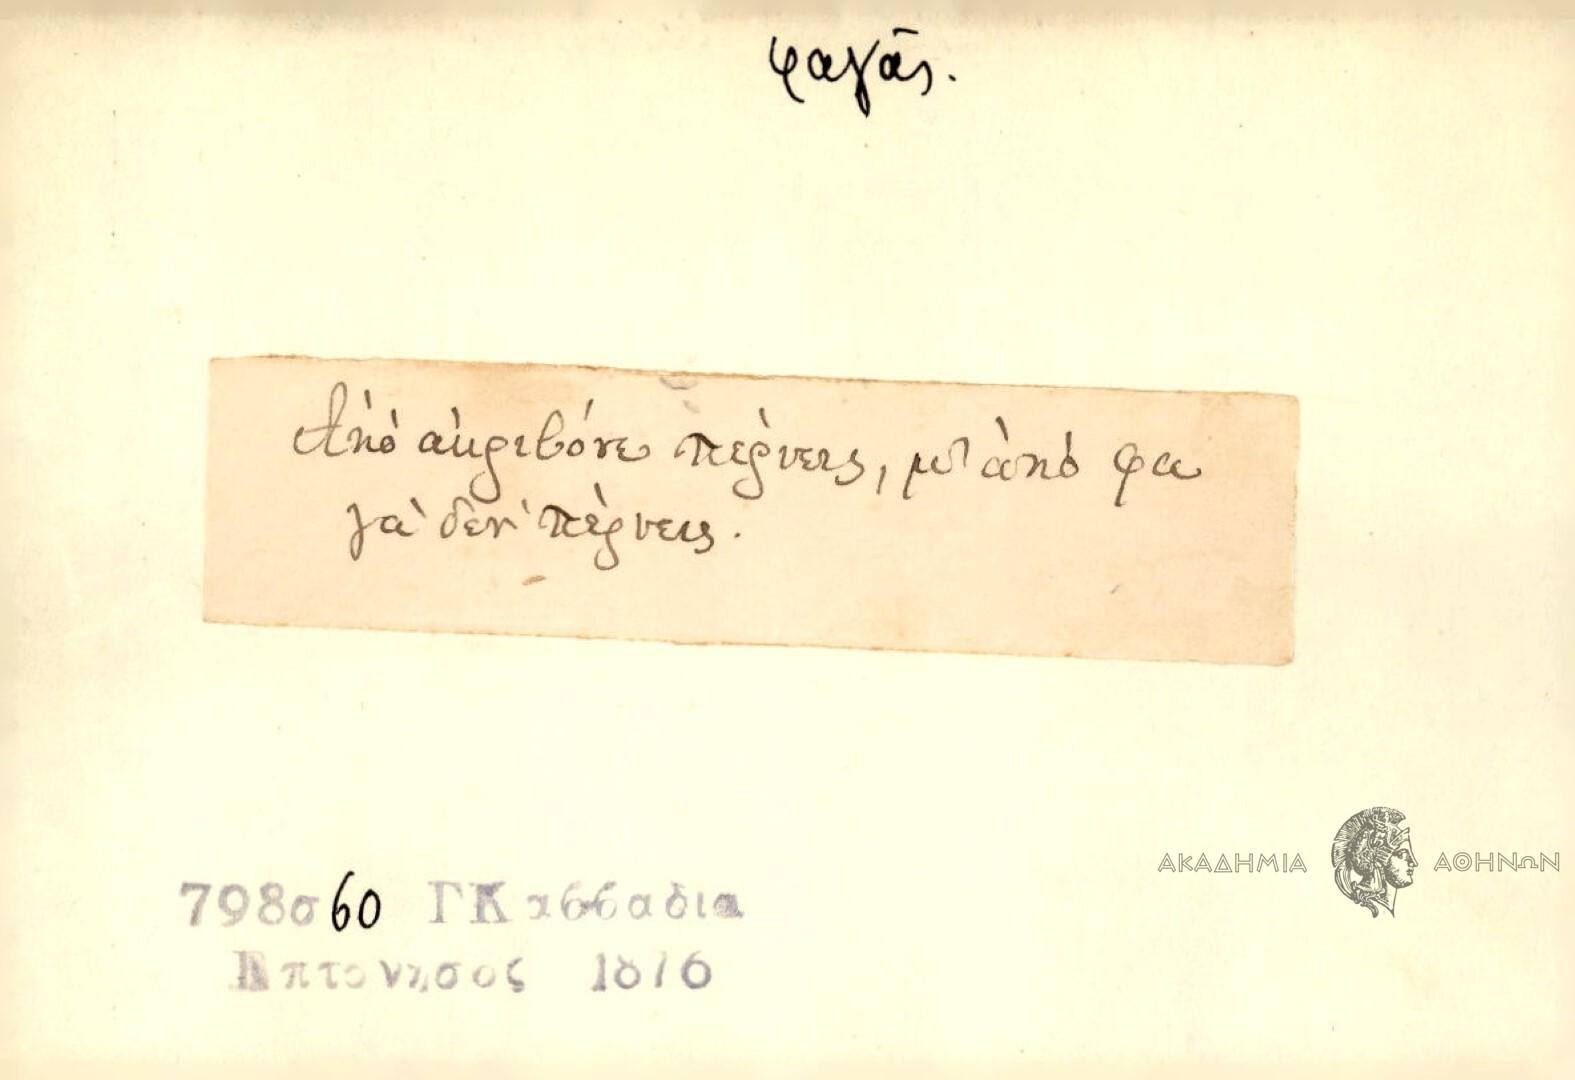 φαγᾶς.
Ἀπὸ ἀκριβόνε πέρνεις, μὰ ἀπὸ φα
γὰ δὲν πέρνεις.
798σ60 ΓΚαββαδία
Επτανησος 1876
ΑΚΑΔΗΜΙΑ ΑΘΗΝΩΝ